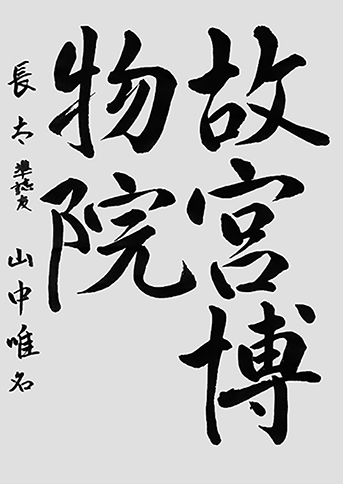 故宮博
物院
長太準誌友山中唯名